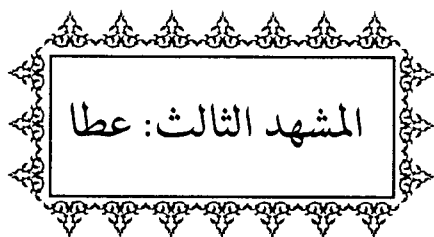 المشهد الثالث: عطا